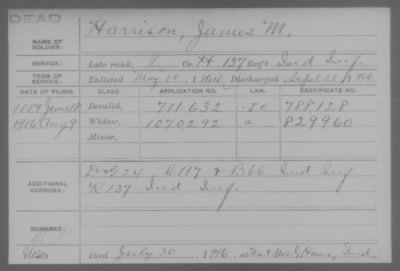 DEAD
NAME OF SOLDIER: Harrison, James M.
SERVICE: Late rank, P. Co. H, 137 Reg't Ind Inf.
TERM OF SERVICE: Enlisted May 10, Discharged Sept
DATE OF FILING. CLASS. APPLICATION NO. LAW. CERTIFICATE NO.
1889 June 18 Invalid, 711632 788,128
1916 Aug 9 Widow, 1070292 a 829960
Minor,
ADDITIONAL SERVICES: D & G 24, B 117 & B 66 Ind Inf
K 137 Ind Inf.
REMARKS:
Died July 30, 1916, at Home, Ind.